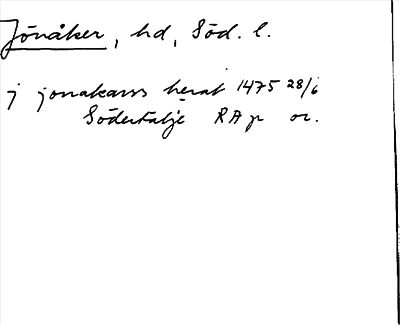 Jönåker, hd, Söd. l.
j jonakars herat 1475 28/6
Södertälje RA p or.